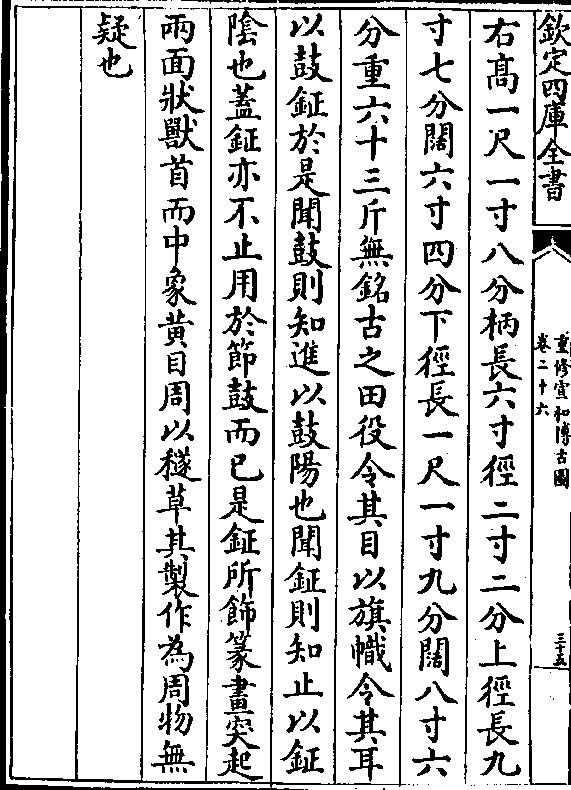 欽定四庫全書
重修宣和博古圖
卷二十六
三十五
右高一尺一寸八分柄長六寸徑二寸二分上徑長九
寸七分闊六寸四分下徑長一尺一寸九分闊八寸六
分重六十三斤無銘古之田役令其目以旗幟令其耳
以鼓鉦於是聞鼓則知進以鼓陽也聞鉦則知止以鉦
陰也蓋鉦亦不止用於節鼓而已是鉦所飾篆畫突起
兩面狀獸首而中象黃目周以穟草其製作為周物無
疑也